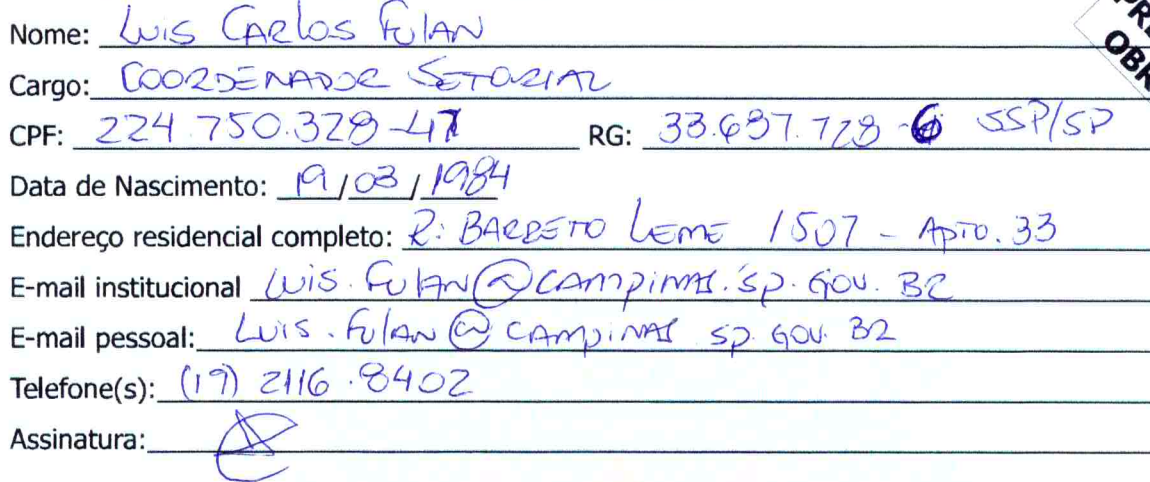 PRE
OBR
Nome: Luis Carlos Fulan
Cargo: COORDENADOR SETORIAL
CPF: 224.750.328-47 RG: 33.637.728-6 SSP/SP
Data de Nascimento: 19/03/1984
Endereço residencial completo: R: BARRETO LEME 1507 - APTO. 33
E-mail institucional Luis.Fulan@campinas.sp.gov.BR
E-mail pessoal: Luis.Fulan@campinas sp.gov.BR
Telefone(s): (19) 2116.8402
Assinatura: